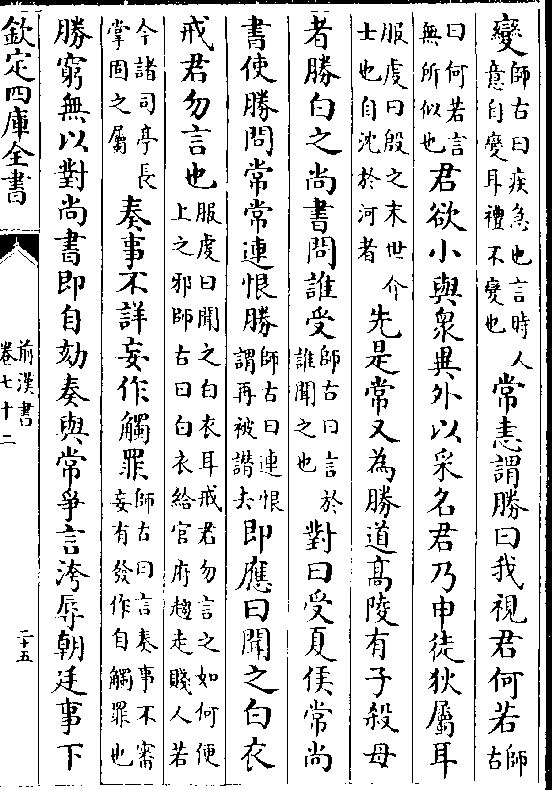 變師古曰疾急也言時人意自變耳禮不變也常恚謂勝曰我視君何若師古
曰何若言無所似也君欲小與衆異外以采名君乃申徒狄屬耳
服虔曰殷之末世介士也自沈於河者先是常又為勝道髙陵有子殺母
者勝白之尚書問誰受師古曰言於誰聞之也對曰受夏侯常尚
書使勝問常常連恨勝師古曰連恨謂再被譛去即應曰聞之白衣
戒君勿言也服虔曰聞之白衣耳戒君勿言之如何便上之邪師古曰白衣給官府趨走賤人若
今諸司亭長掌固之屬奏事不詳妄作觸罪師古曰言奏事不審妄有發作自觸罪也
勝窮無以對尚書即自劾奏與常爭言洿辱朝廷事下
欽定四庫全書
前漢書
卷七十二
二十五